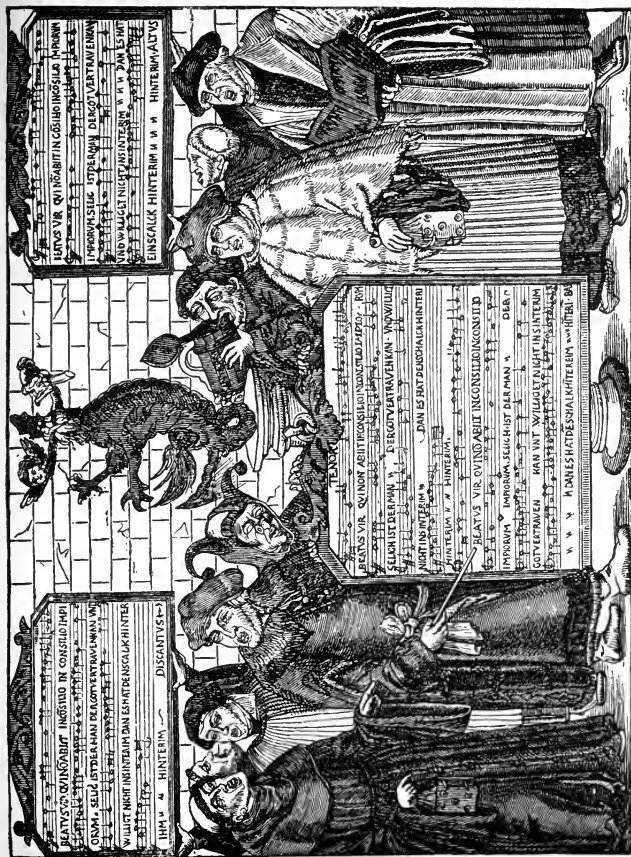 BEATVS VD QVINOABIIT INCOSILIO IN CONSILIO IMPI
ORVM. SELIG IST DER MAN DER GOT VERTRAVEN KAN VND
WILLIGT NICHT INS INTERIM DAN ES HAT DEN SCALCK HINTER
IHM " " HINTERIM DISCANTVS
TENOR
BEATVS VIR QVI NON ABIIT IN CONSILIO IN CONSILIO IMPIO RVM
SELICH IST DER MAN " DER GOT VERTRAVEN KAN VND WILLIG
NICHT INS INTERIM " DAN ES HAT DEN SCHALCK HINTERI
HINTERIM " " HINTERIM.
BEATVS VIR QVI NO ABIIT IN CONSILIO IN CONSILIO
IMPIORVM IMPIORVM. SELICH IST DER MAN " DER
GOT VERTRAVEN KAN VNT WILLIGET NICHT INS INTERIM
" " " DAN ES HAT DE SCHALK HITEREIM " " " HITERI. BA
BEATVS VIR QVI NO ABIIT IN COSILIO IN COSILIO IMPIORVM
IMPIORVM. SELIG IST DER MAN DER GOT VERTRAVEN KAN
VND WILLIGET NICHT INS INTERIM " " " DAN ES HAT
EIN SCALCK HINTERIM " " " HINTERIM. ALTVS